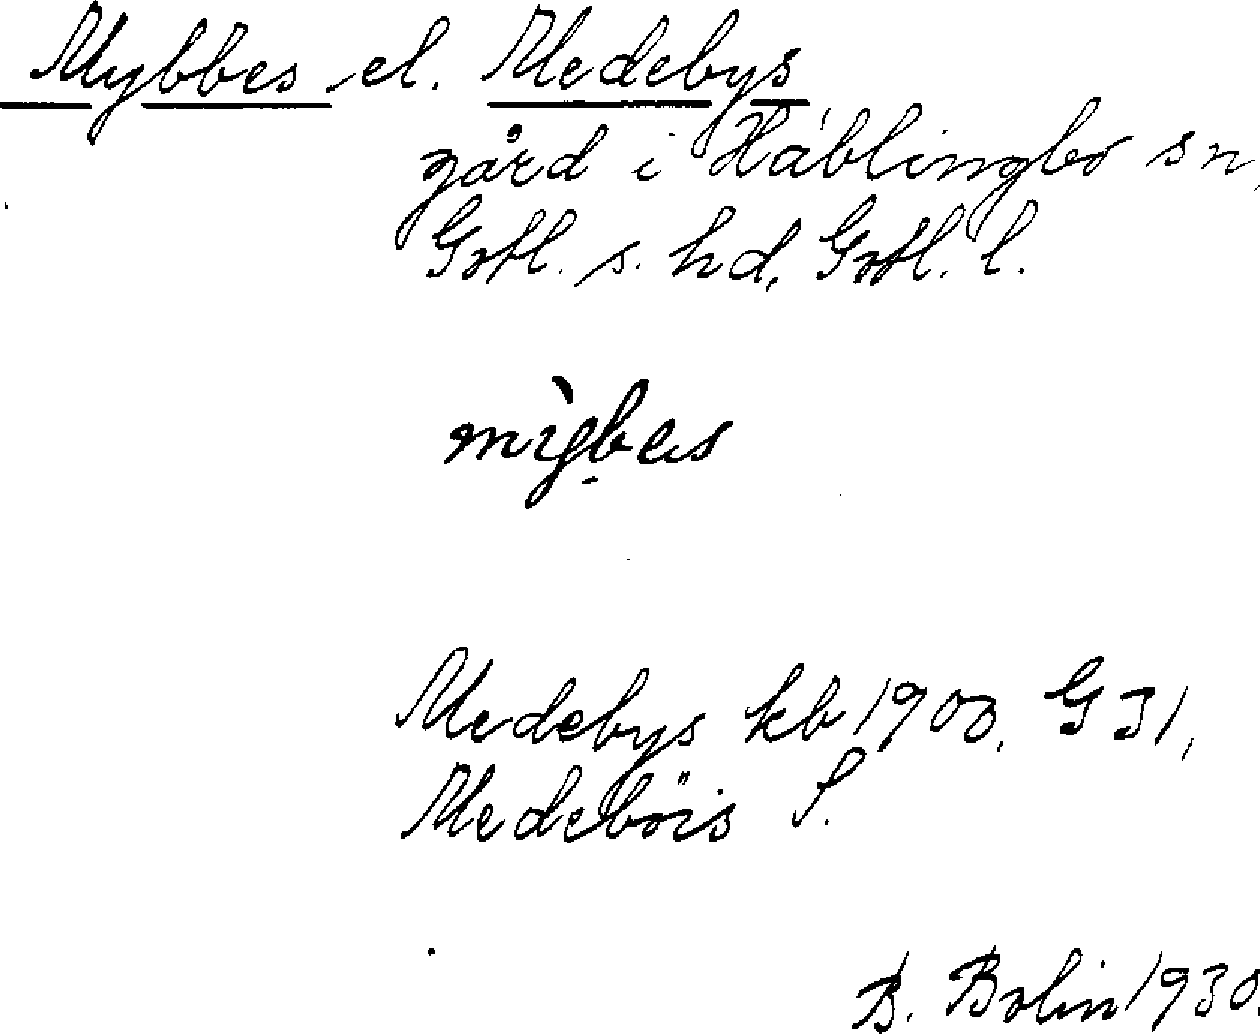 Mybbes el. Medebys
gård i Hablingbo sn,
Gotl. s. hd, Gotl. l.
Medebys kb 1900, G 31,
Medebois S.
B. Bolin 1930.